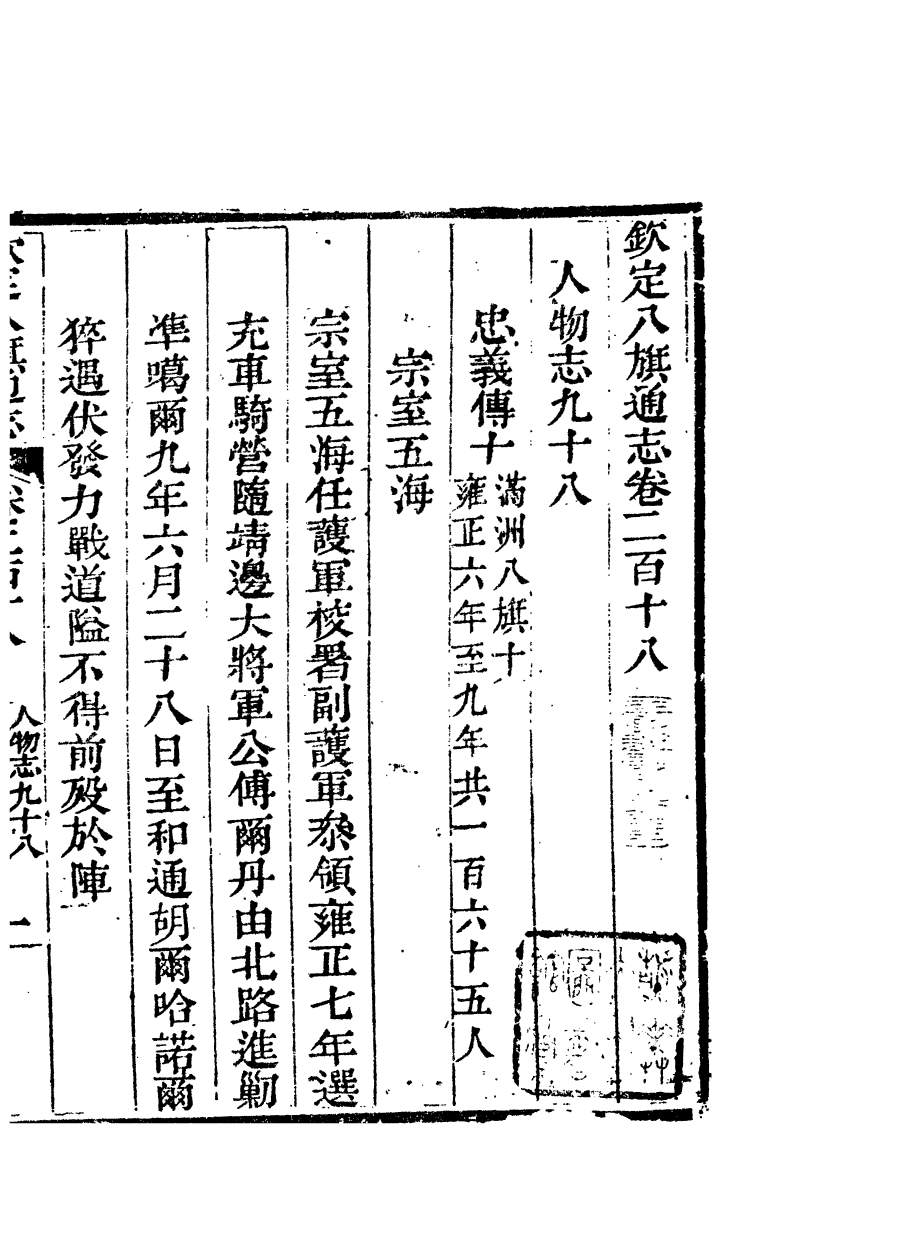 欽定八旗通志卷二百十八
人物志九十八
忠義傳十
滿洲八旗十
雍正六年至九年共一百六十五人
宗室五海
宗室五海任護軍校署副護軍叅領雍正七年選
充車騎營隨靖邊大將軍公傅爾丹由北路進勦
準噶爾九年六月二十八日至和通胡爾哈諾爾
猝遇伏發力戰道隘不得前殁於陣
人物志九十八